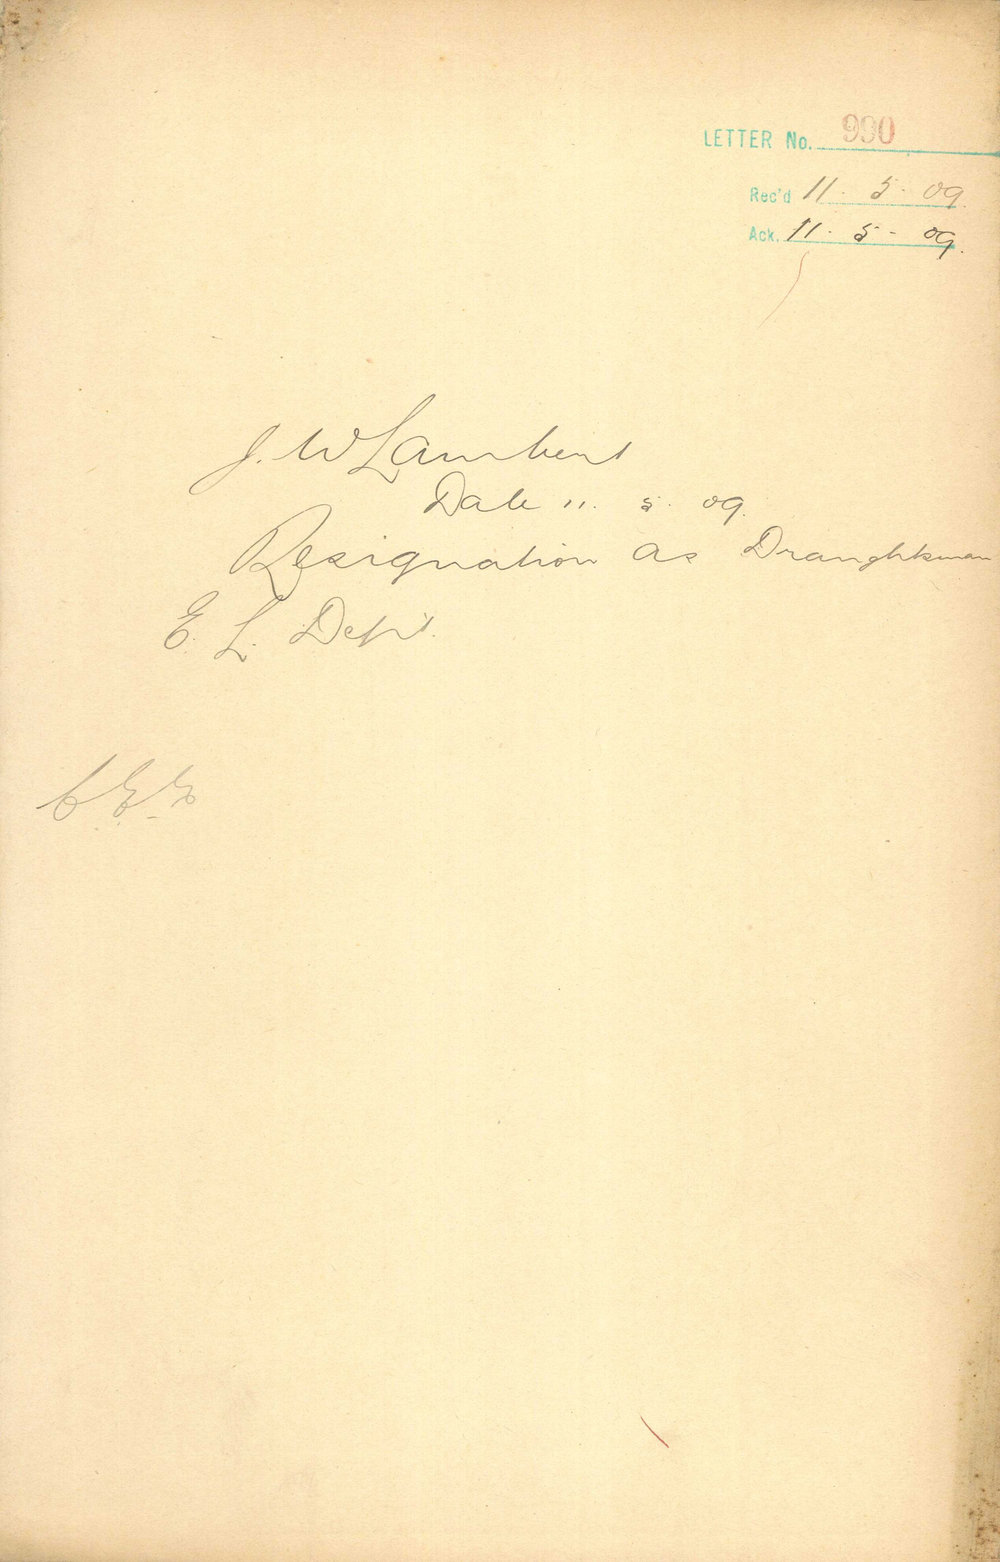 LETTER No. 990
Rec'd 11. 5. 09.
Ack. 11. 5. 09.
J. W Lambert
Date 11. 5. 09.
Resignation as Draughtsman
E. L. Dept.